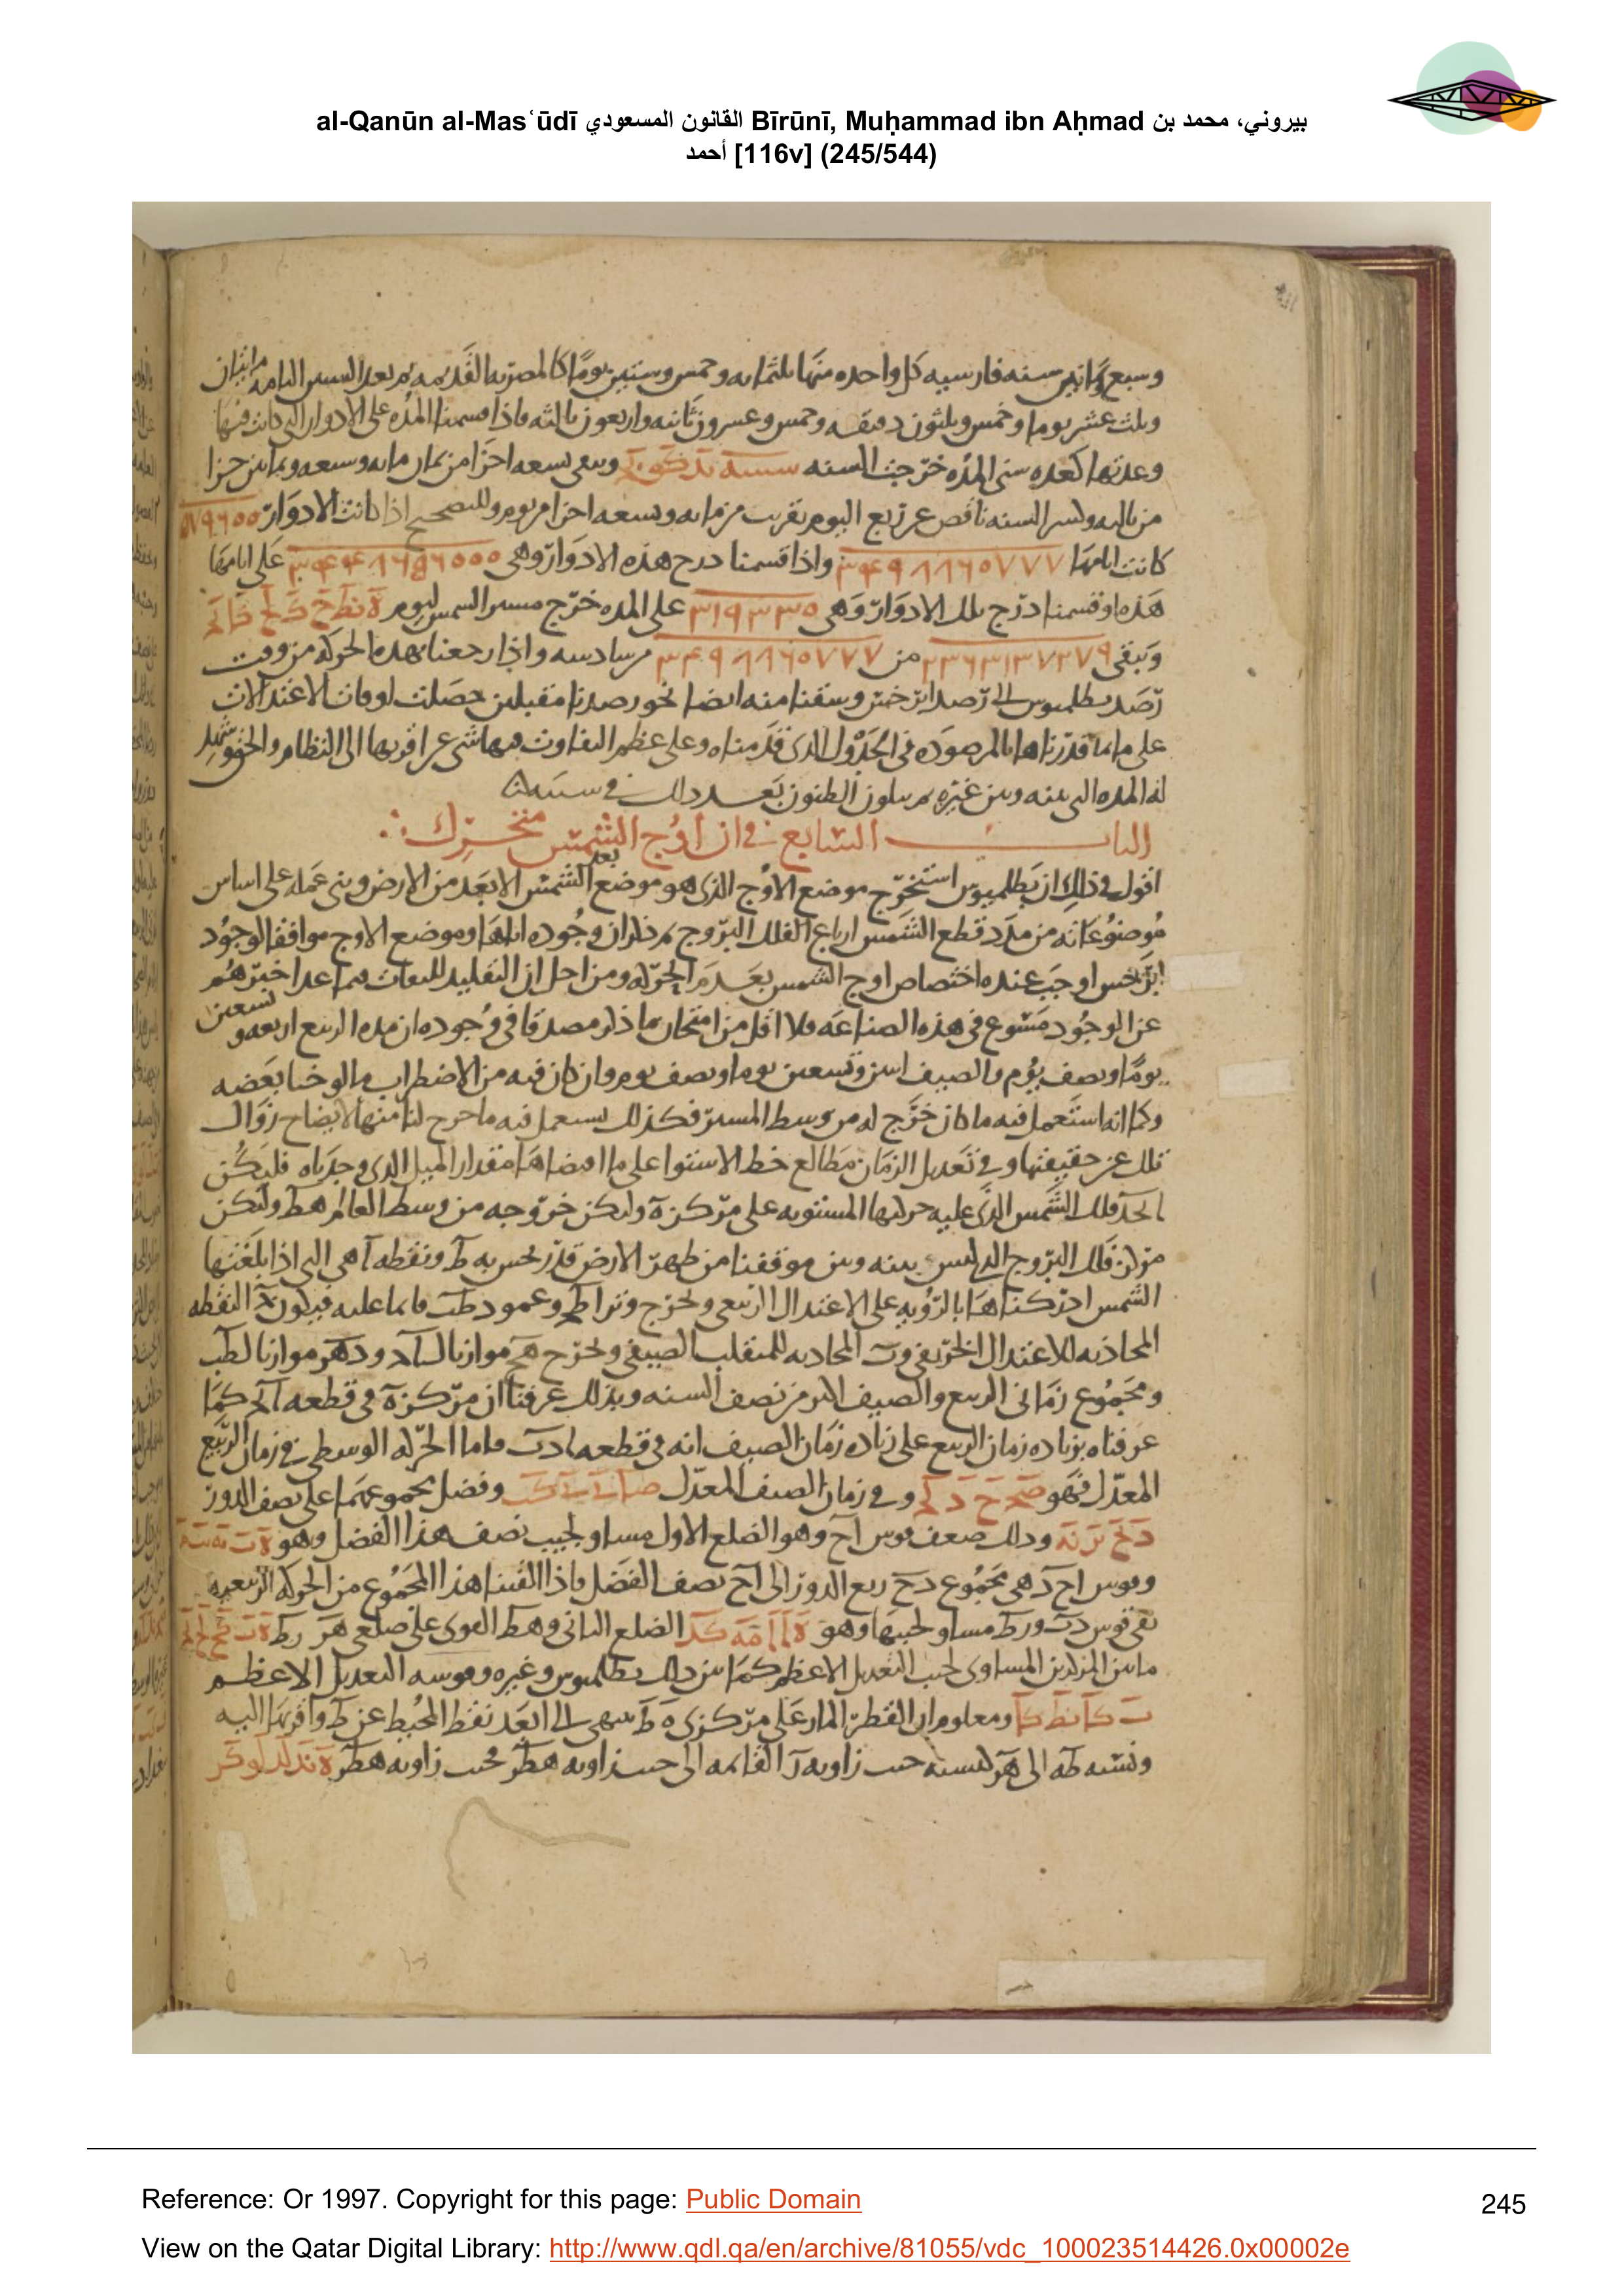 al-Qanūn al-Masʿūdī القانون المسعودي Bīrūnī, Muḥammad ibn Aḥmad بيروني، محمد بن
أحمد [116v] (245/544)
وسبع وثمانين سنه فارسيه كل واحده منها ثلثمايه وخمس وستين يومًا كالمصريه القديمه ثم بعد السنين التامه مايتان
وثلث عشر يوما وخمس وثلثون دقيقه وخمس وعسرون ثانيه واربعون ثالثه فاذا قسمنا المده على الادوار التى كانت فيها
وعدتها كعده سنى المده خرجت السنه وبقى تسعه اجزا من ثمان مايه وسبعه وثمانين جزا
من ثالثه وكسر السنه ناقص عن ربع اليوم بقريب من مايه وتسعه اجزا من يوم وللتصحيح اذا كانت الادوار
كانت ايامها ٣٤٩٨٨٦٥٧٧٧ واذا قسمنا درج هذه الادوار وهى على ايامها
هذه او قسمنا درج تلك الادوار وهى ٣١٩٣٣٥ على المده خرج مسير الشمس ليوم
وتبقى ٢٣٦٣١٣٧٢٧٩ من ٣٤٩٨٨٦٥٧٧٧ من سادسه واذا رجعنا بهذه الحركه من وقت
رصد بطلميوس الى رصد ابرخس وسقنا منه ايضا نحو رصدنا مقبلين حصلت اوقات الاعتدالات
على ما قدرناها بالمرصوده فى الجدول الذى قدمناه وعلى عظم التفاوت فيها شى عن اقربها الى النظام والحق شهيد
له المده التى بينه وبين غيره الظنون بعد ذلك فى سننه
الباب السابع فى ان اوج الشمس متحرك
اقول فى ذلك ان بطلميوس استخرج موضع الاوج الذى هو موضع بعد الشمس الابعد من الارض وبنى عمله على اساس
موضوعاته من مدد قطع الشمس ارباع الفلك البروج ثم ذكر ان وجوده اياها وموضع الاوج موافقا لوجود
ابرخس اوجب عنده اختصاص اوج الشمس بعدم الحركه ومن اجل ان التقليد للثقات فيما عدا خبرهم
عن الوجود مشنوع فى هذه الصناعه فلا اقل من امتحان ما ذكر مصدقا فى وجوده ان مده الربيع اربعه وتسعين
يومًا ونصف يوم والصيف اثنين وتسعين يوما ونصف يوم وان كان فيه من الاضطراب ما لوحنا ببعضه
وكما انه استعمل فيه ما كان خرج له من وسط المسير فكذلك نستعمل فيه ما خرج لنا منها لايضاح زوال
تلك عن حقيقتها وفى تعديل الزمان مطالع خط الاستوا على ما اقتضاها مقدار الميل الذى وجدناه فليكن
ابجد فلك الشمس الذى عليه حركتها المستويه على مركزه وليكن خروجه من وسط العالم هط وليكن
مركز فلك البروج الذى ليس بينه وبين موقفنا من ظهر الارض قدر يحس به ط ونقطه ا هى التى اذا بلغتها
الشمس ادركناها بالرؤيه على الاعتدال الربيعى ونخرج وتر اطج وعمود طب قايما عليه فيكون ج النقطه
المحاذيه للاعتدال الخريفى وب المحاذيه للمنقلب الصيفى ونخرج هح موازيا لـ ودهر موازيا لطب
ومجموع زمانى الربيع والصيف اكثر من نصف السنه وبذلك عرفنا ان مركزه فى قطعه ابج كما
عرفناه بزياده زمان الربيع على زياده زمان الصيف انه فى قطعه ادب فاما الحركه الوسطى فى زمان الربيع
المعدل فهو وفى زمان الصيف المعدل وفضل مجموعهما على نصف الدور
وذلك ضعف قوس اح وهو الضلع الاول مساو لجيب نصف هذا الفضل وهو
وقوس احد هى مجموع دح ربع الدور الى اح نصف الفضل فاذا القينا هذا المجموع من الحركه الربيعيه
بقى قوس دب ورط مساو لجيبها وهو الضلع الثانى وهط القوى على ضلعى هر رط
ما بين المركزين المساوى لجيب التعديل الاعظم كما بين ذلك بطلميوس وغيره وقوسه التعديل الاعظم
ومعلوم ان القطر المار على مركزى ه ط ينتهى الى ابعد نقط المحيط عن ط واقربها اليه
ونسبه طه الى هر كنسبه جيب زاويه ر القائمه الى جيب زاويه هطر فجيب زاويه هطر
Reference: Or 1997. Copyright for this page: Public Domain
245
View on the Qatar Digital Library: http://www.qdl.qa/en/archive/81055/vdc_100023514426.0x00002e